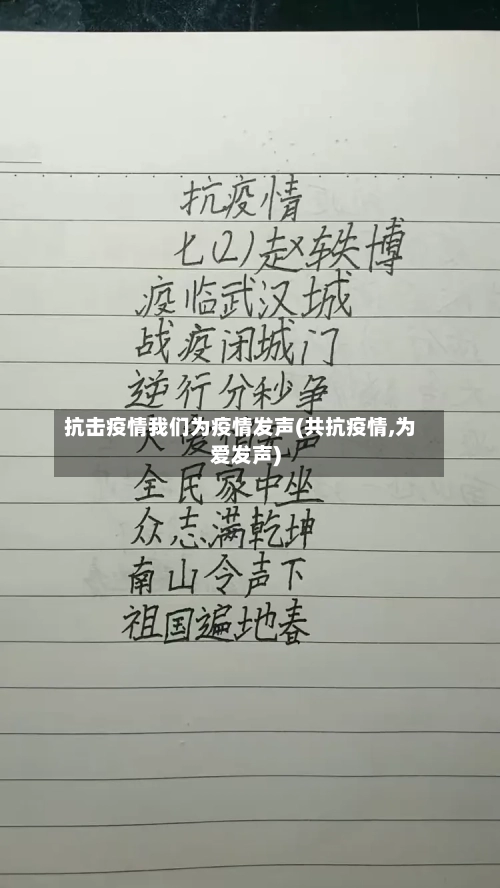 抗疫情
七(2)赵轶博
疫临武汉城
战疫闭城门
逆行分秒争
抗击疫情我们为疫情发声(共抗疫情,为
爱发声)
全民家中坐
众志满乾坤
南山令声下
祖国遍地春